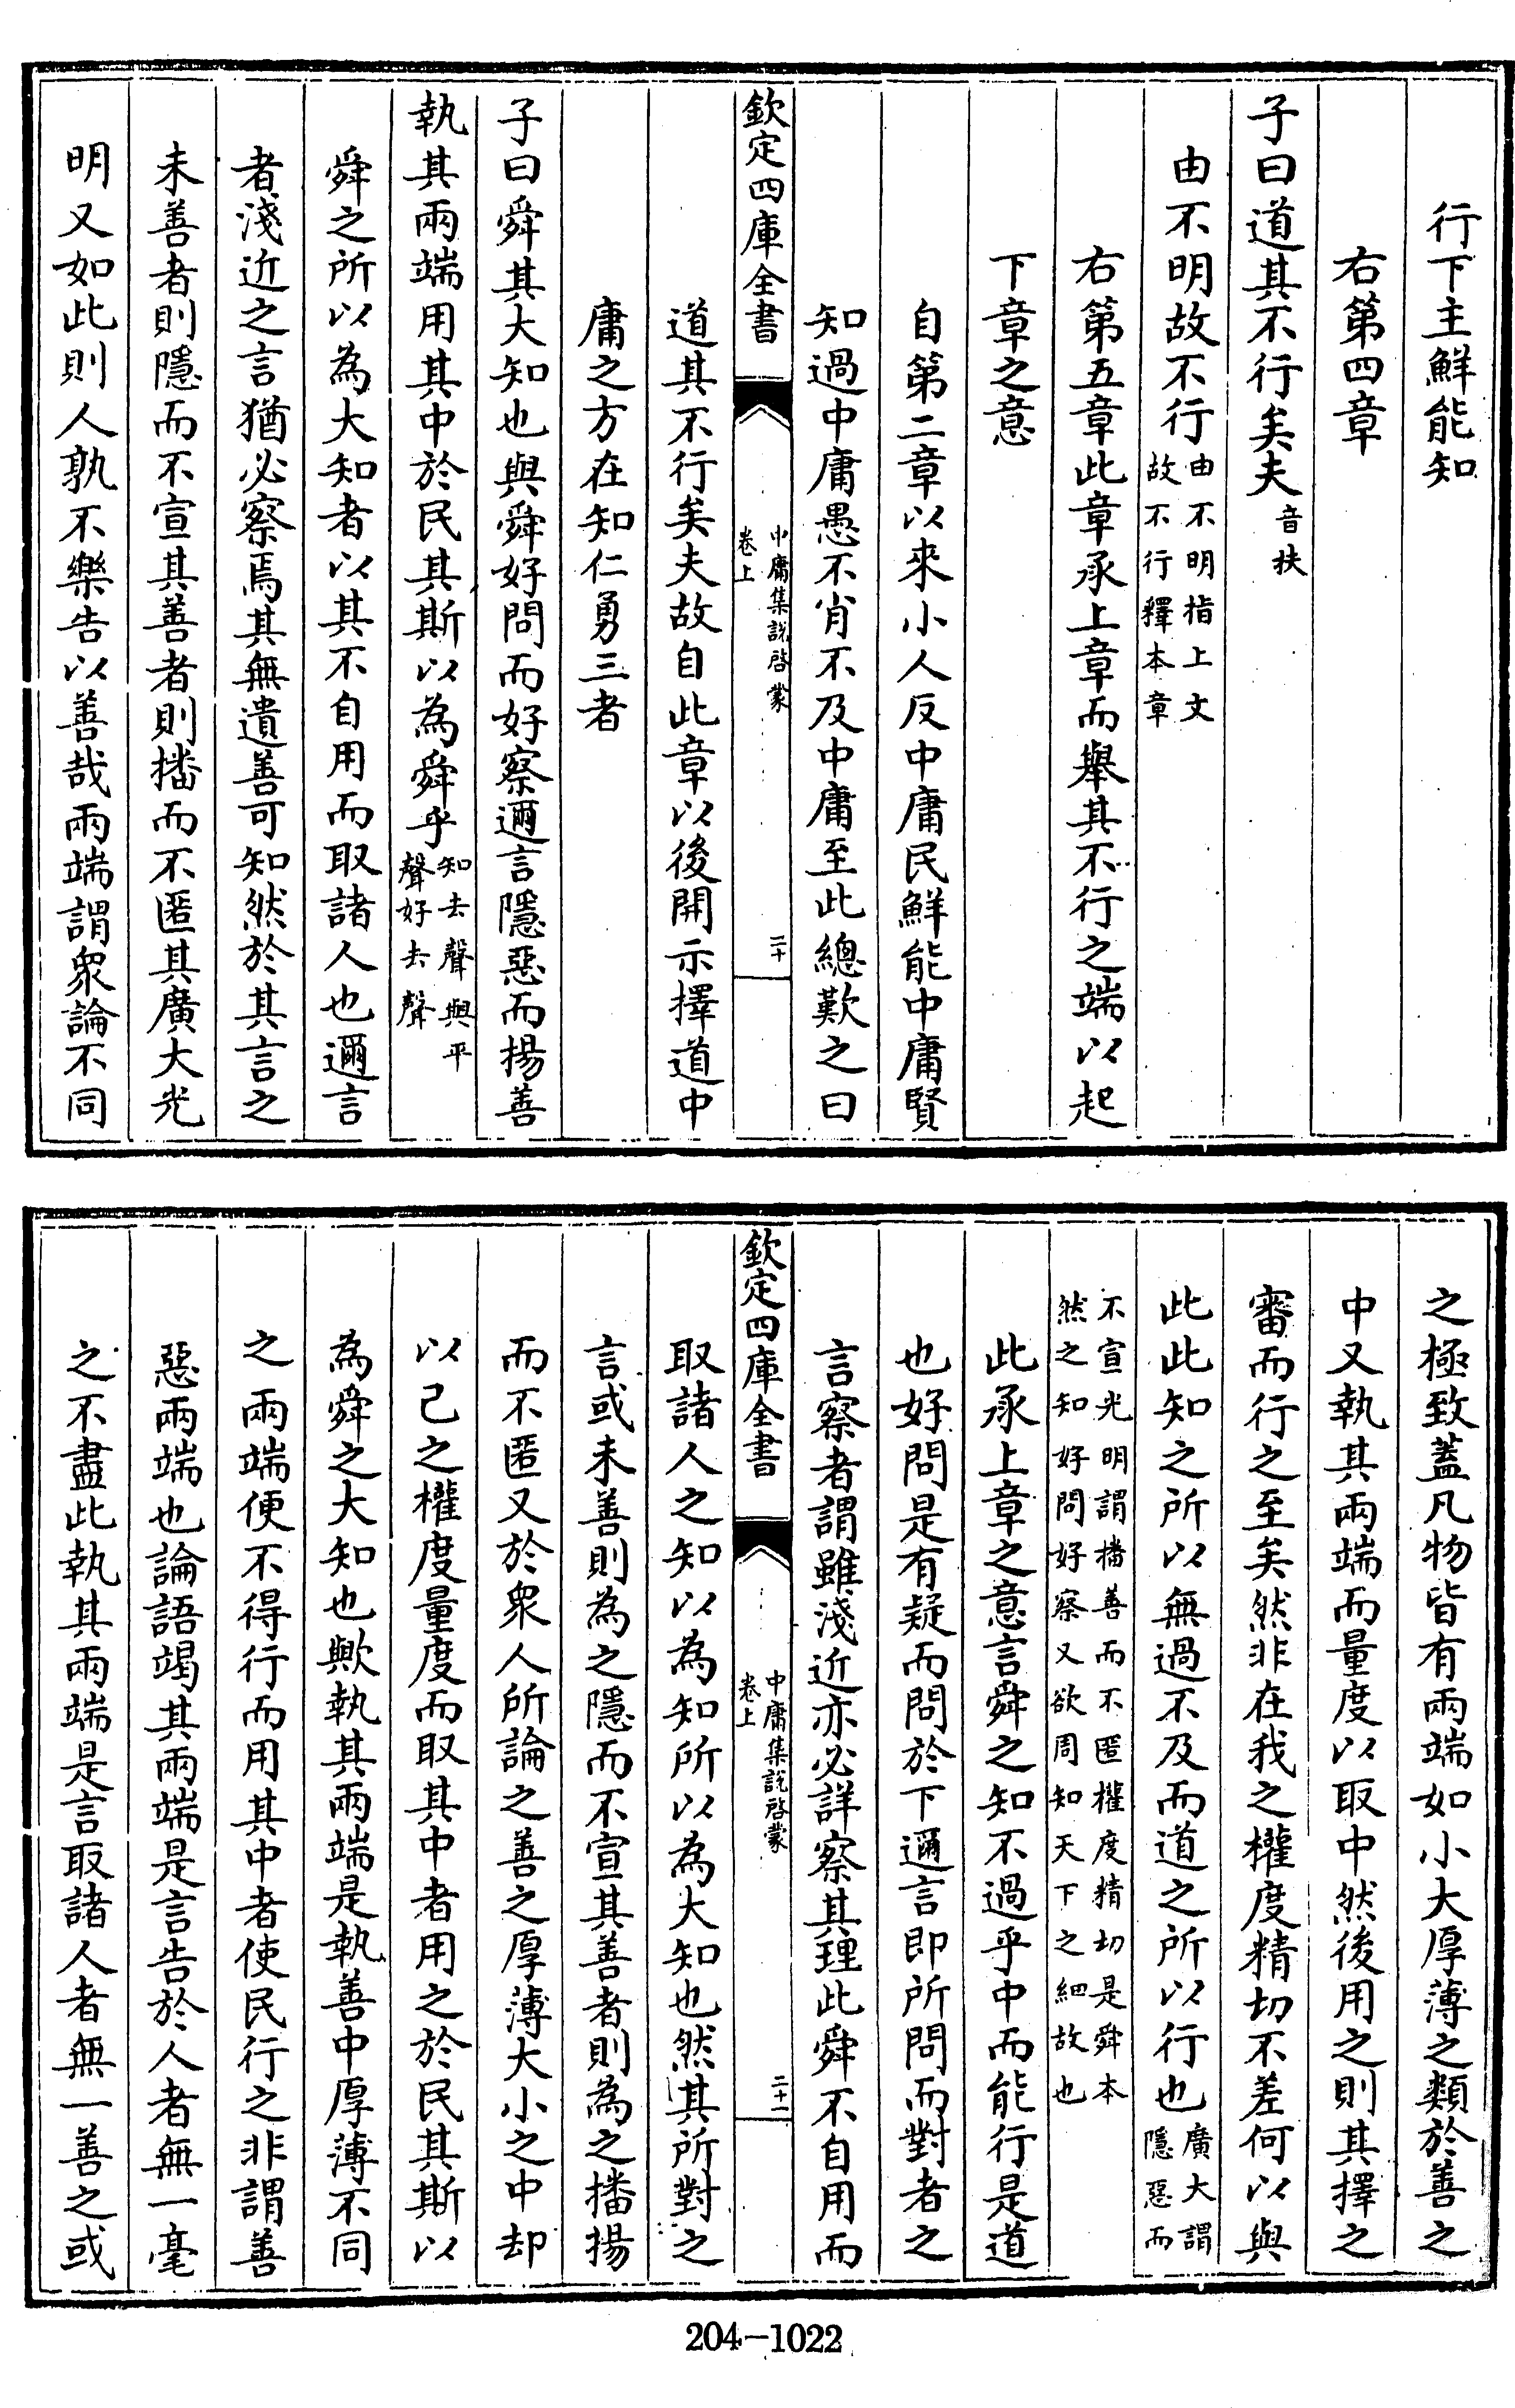 行下主鮮能知
右第四章
子曰道其不行矣夫音扶
由不明故不行由不明指上文故不行釋本章
右第五章此章承上章而舉其不行之端以起
下章之意
自第二章以來小人反中庸民鮮能中庸賢
知過中庸愚不肖不及中庸至此總歎之曰
欽定四庫全書
中庸集說啓蒙
卷上
二十
道其不行矣夫故自此章以後開示擇道中
庸之方在知仁勇三者
子曰舜其大知也與舜好問而好察邇言隱惡而揚善
執其兩端用其中於民其斯以為舜乎知去聲與平聲好去聲
舜之所以為大知者以其不自用而取諸人也邇言
者淺近之言猶必察焉其無遺善可知然於其言之
未善者則隱而不宣其善者則播而不匿其廣大光
明又如此則人孰不樂告以善哉兩端謂衆論不同
之極致蓋凡物皆有兩端如小大厚薄之類於善之
中又執其兩端而量度以取中然後用之則其擇之
審而行之至矣然非在我之權度精切不差何以與
此此知之所以無過不及而道之所以行也廣大謂隱惡而
不宣光明謂播善而不匿權度精切是舜本然之知好問好察又欲周知天下之細故也
此承上章之意言舜之知不過乎中而能行是道
也好問是有疑而問於下邇言即所問而對者之
言察者謂雖淺近亦必詳察其理此舜不自用而
欽定四庫全書
中庸集說啓蒙
卷上
二十一
取諸人之知以為知所以為大知也然其所對之
言或未善則為之隱而不宣其善者則為之播揚
而不匿又於衆人所論之善之厚薄大小之中却
以己之權度量度而取其中者用之於民其斯以
為舜之大知也歟執其兩端是執善中厚薄不同
之兩端便不得行而用其中者使民行之非謂善
惡兩端也論語竭其兩端是言告於人者無一毫
之不盡此執其兩端是言取諸人者無一善之或
204-1022